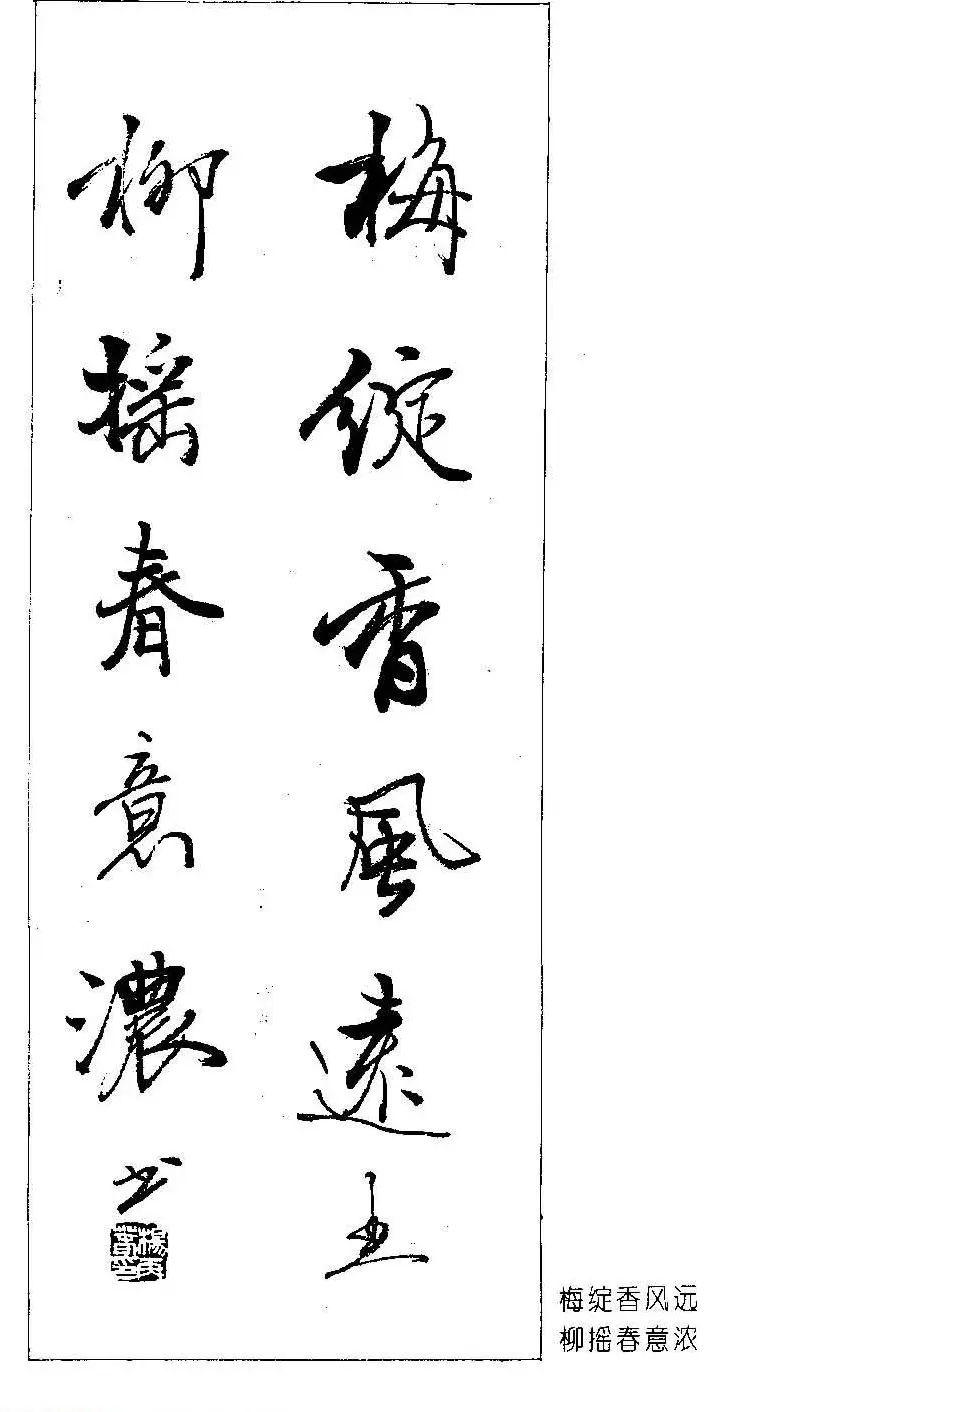 梅綻香風遠
柳摇春意濃
书
梅绽香风远
柳摇春意浓